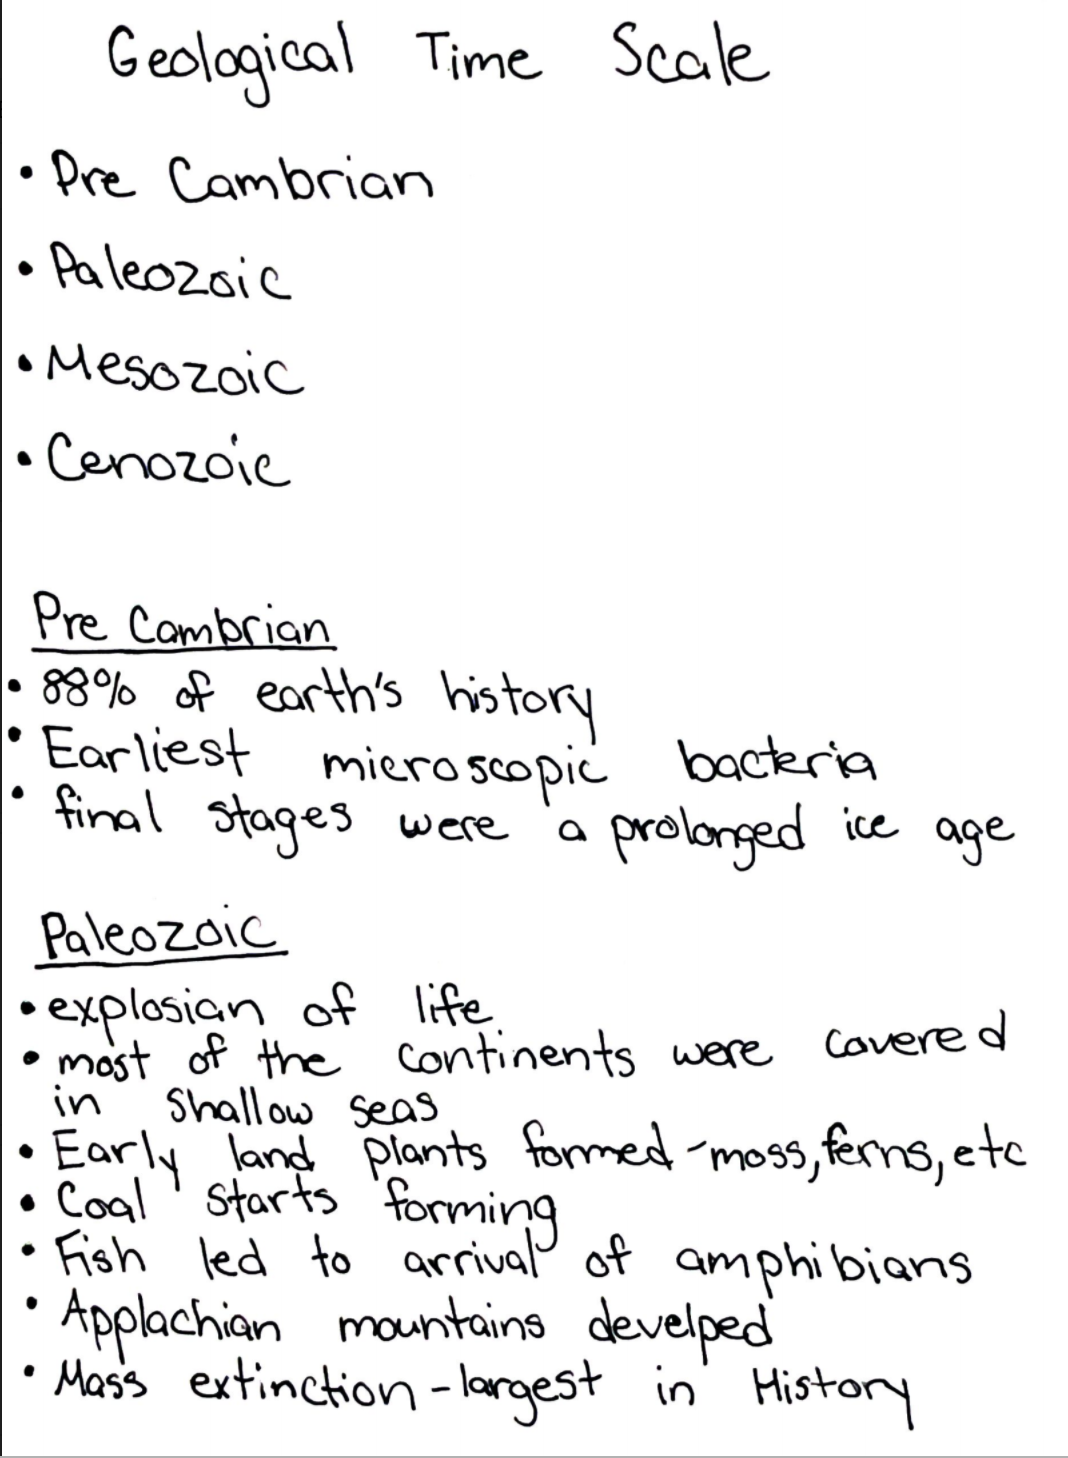 Geological Time Scale
• Pre Cambrian
• Paleozoic
• Mesozoic
• Cenozoic
Pre Cambrian
• 88% of earth's history
• Earliest microscopic bacteria
• final stages were a prolonged ice age
Paleozoic
• explosian of life
• most of the continents were covered
in shallow seas
• Early land plants formed - moss, ferns, etc
• Coal starts forming
• Fish led to arrival of amphibians
• Applachian mountains develped
• Mass extinction - largest in History